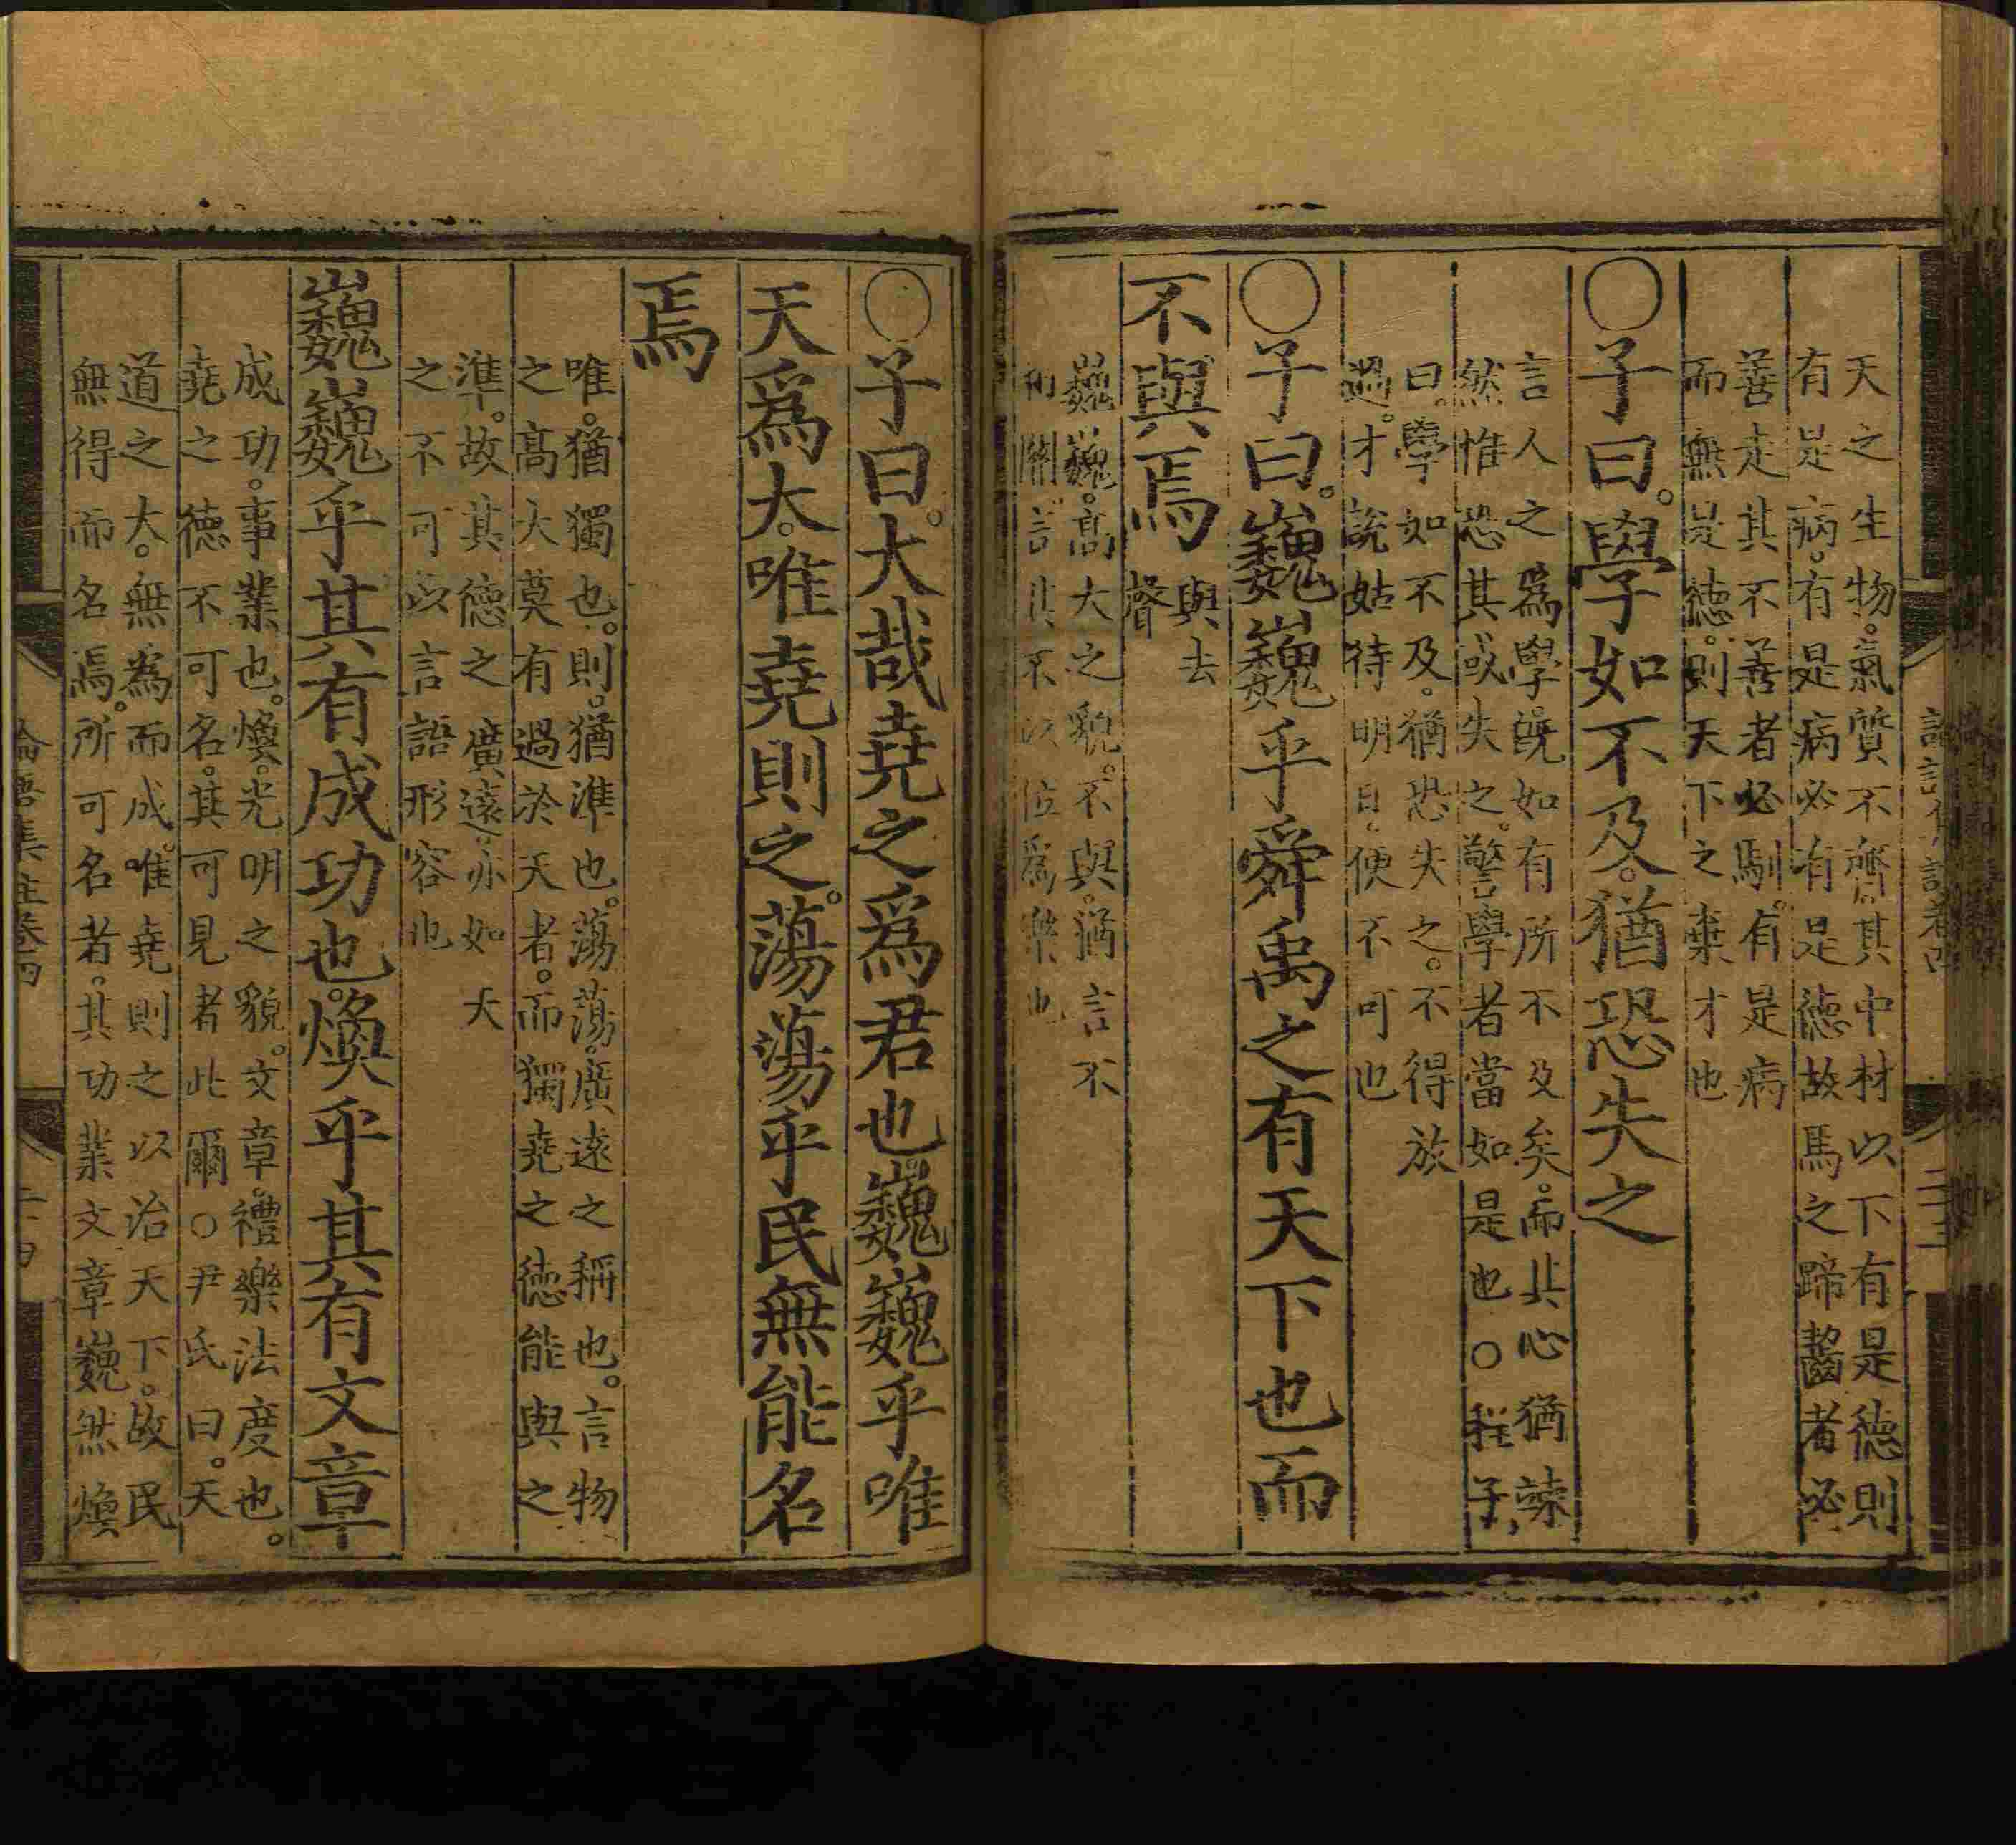 天之生物。氣質不齊。其中材以下有是德則
有是病。有是病必有是德故馬之蹄齧者必
善走其不善者必馴。有是病
而無是德。則天下之棄才也
○子曰。學如不及。猶恐失之
言人之爲學。既如有所不及矣。而其心猶竦
然惟恐其或失之。警學者當如是也○程子
曰。學如不及。猶恐失之。不得放
過。才說姑待明日。便不可也
○子曰。巍巍乎舜禹之有天下也而
不與焉
與去
聲
巍巍。高大之貌。不與。猶言不
相關。言其不以位爲樂也
○子曰。大哉堯之爲君也。巍巍乎唯
天爲大。唯堯則之。蕩蕩乎民無能名
焉
唯。猶獨也。則。猶準也。蕩蕩。廣遠之稱也。言物
之高大莫有過於天者。而獨堯之德能與之
準。故其德之廣遠。亦如天
之不可以言語形容也
巍巍乎其有成功也。煥乎其有文章
成功。事業也。煥。光明之貌。文章。禮樂法度也。
堯之德不可名。其可見者此爾○尹氏曰。天
道之大。無為而成。唯堯則之以治天下。故民
無得而名焉。所可名者。其功業文章巍然煥